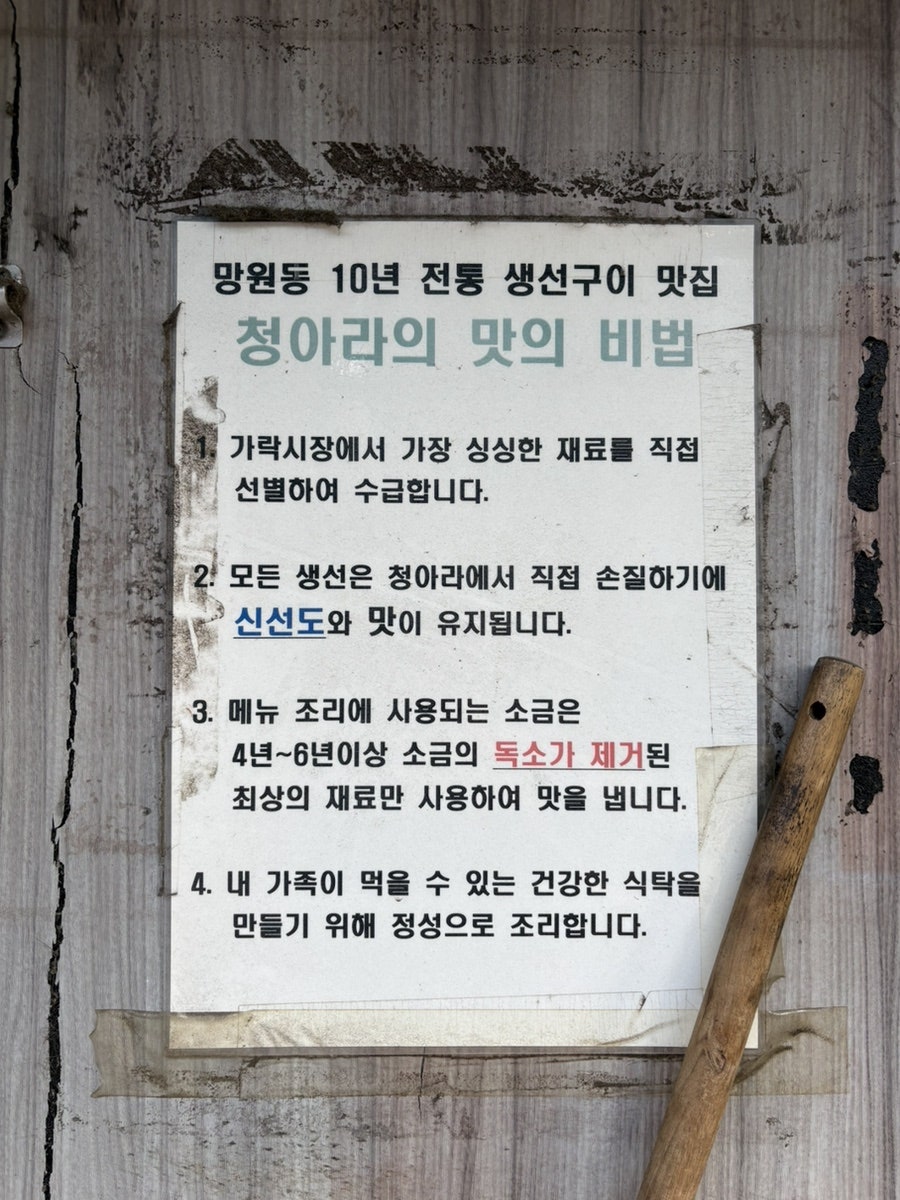 망원동 10년 전통 생선구이 맛집
청아라의 맛의 비법
1. 가락시장에서 가장 싱싱한 재료를 직접
선별하여 수급합니다.
2. 모든 생선은 청아라에서 직접 손질하기에
신선도와 맛이 유지됩니다.
3. 메뉴 조리에 사용되는 소금은
4년~6년이상 소금의 독소가 제거된
최상의 재료만 사용하여 맛을 냅니다.
4. 내 가족이 먹을 수 있는 건강한 식탁을
만들기 위해 정성으로 조리합니다.